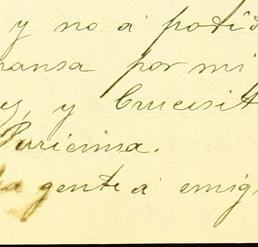 y no á podid
mansa por mi
y Crucesit
Puricima.
la gente á emig